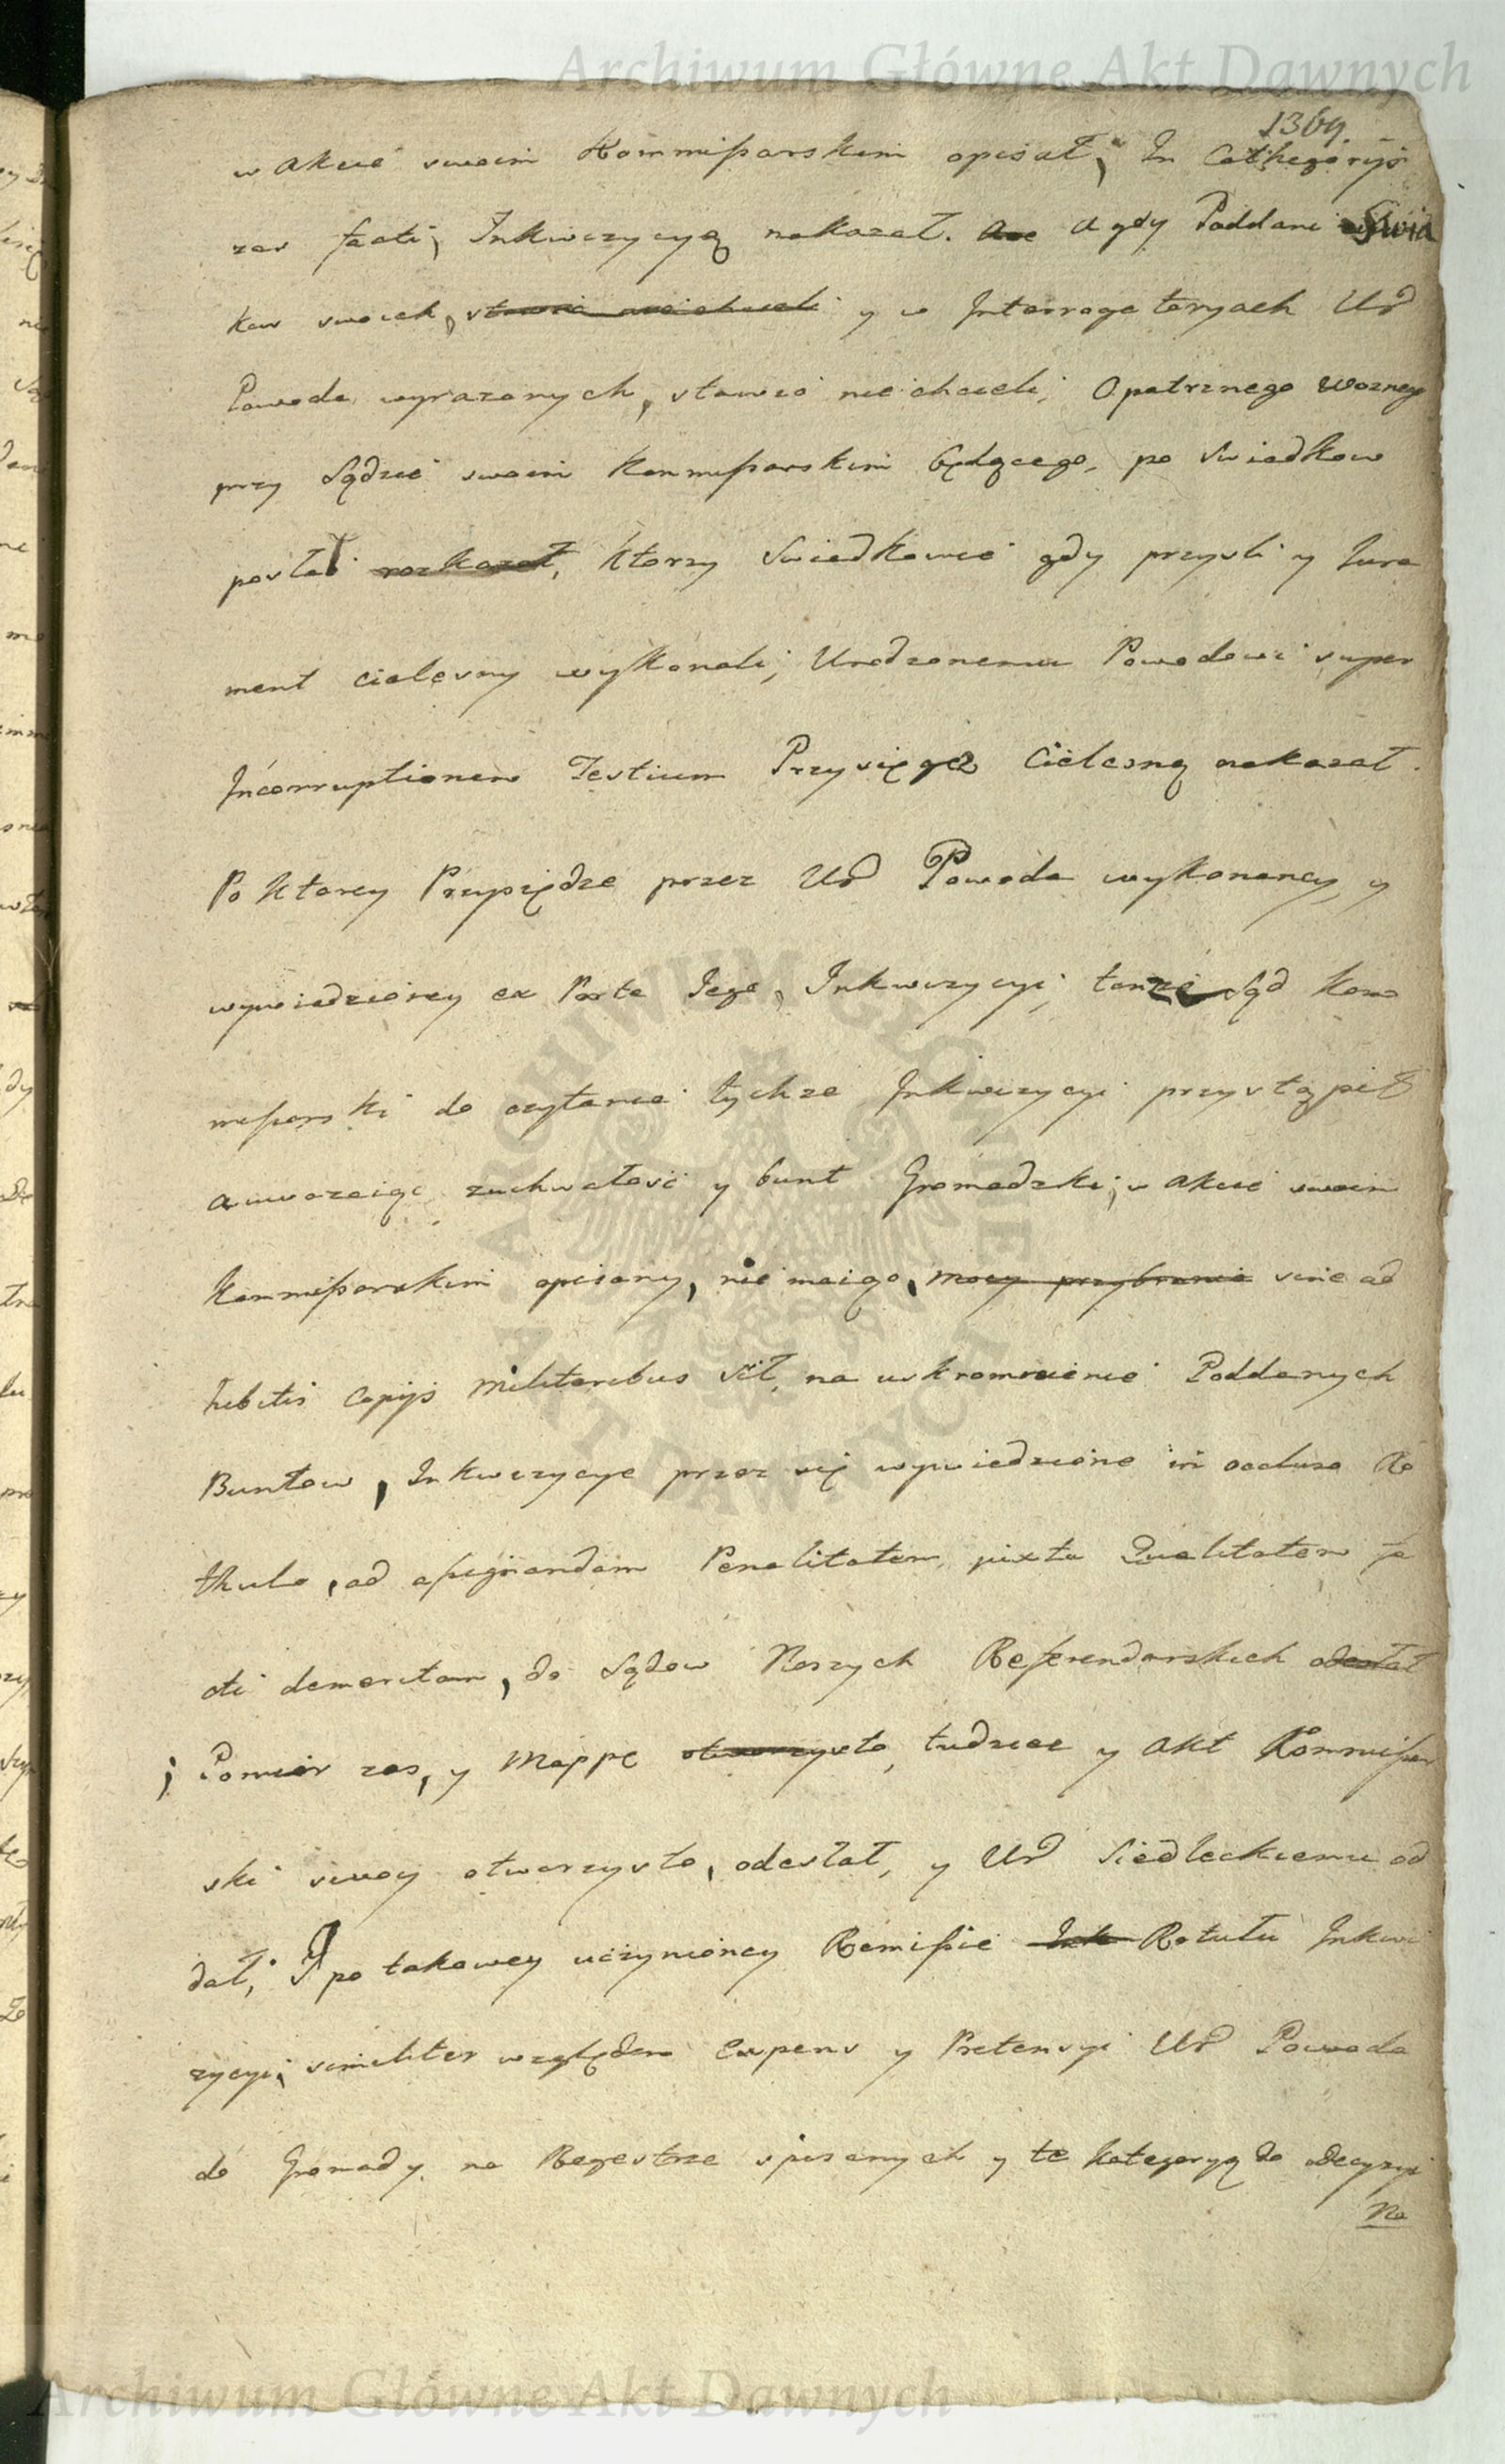 Archiwum Główne Akt Dawnych
1369.
w akcie swoim Kommißarskim opisał, In Cathegoryis
zas facti, Inkwizycyą nakazał. A gdy Poddani Swia
kow swoich, stawić nie chcieli y w Interrogatoryach Ur
Powoda wyrazonych, stawić nie chcieli; Opatrznego Woznego
przy Sądzie swoim Kommißarskim będącego, po Swiadkow
posłał rozkazał, ktorzy Swiadkowie gdy przysli y Jura
ment cielesny wykonali; Urodzonemu Powodowi super
Incorruptionem Testium Przysięgę Cielesną nakazał.
Po ktorey Przysiędze przez Ur Powoda wykonaney, y
wywiedzioney ex Parte Jego, Inkwizycyi; tenże Sąd Kom
mißarski do czytania tychze Inkwizycyi przystąpił
a uwazaiąc zuchwałość y bunt Gromadzki, w akcie swoim
Kommißarskim opisany, nie maiąc, mocy przybrania sine ad
hibitis Copijs Militaribus sił, na uskromienie Poddanych
Buntow, Inkwizycye przez się wywiedzione in occluso Ro
thulo, ad aßignandam Penalitatem juxta Qualitatem fa
cti demeritam, do Sądow Naszych Referendarskich odesłał
; Pomiar zas, y Mappę otworzysto, tudziez y akt Kommißar
ski swoy otworzysto, odesłał, y Ur Siedleckiemu od
dał; I po takowey uczynioney Remißie Ink Rotułu Inkwi
zycyi, similiter względem Expens y Pretensyi Ur Powoda
do Gromady na Regestrze spisanych y te kategoryą do decyzyi
Na
ARCHIWUM GŁÓWNE AKT DAWNYCH
Archiwum Główne Akt Dawnych